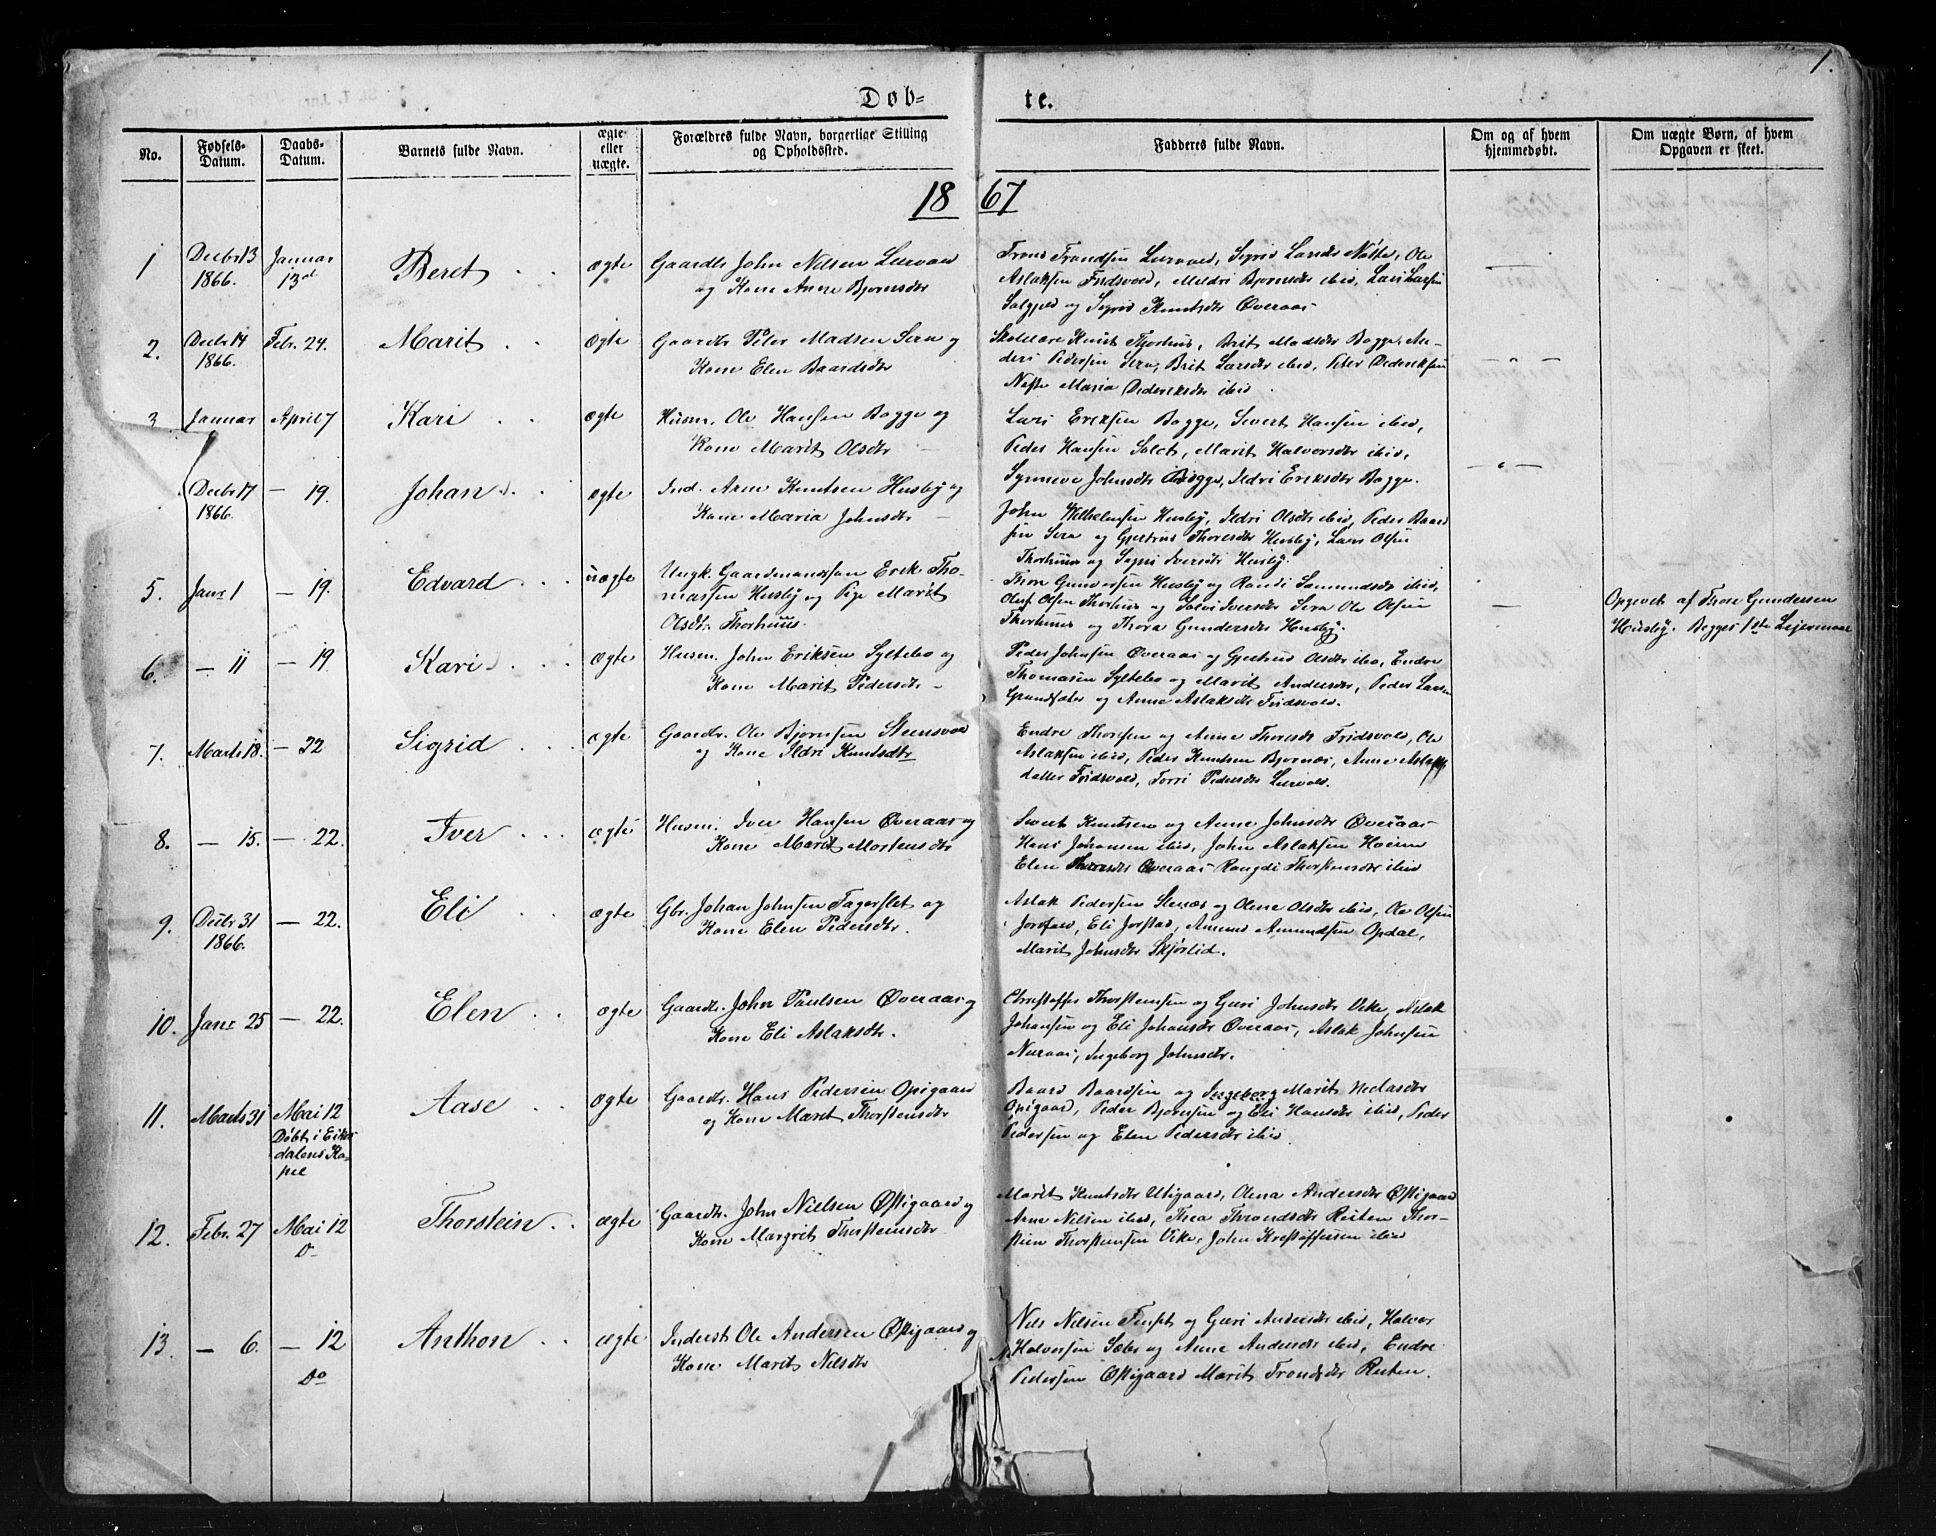 1.
Døb- te.
No.
Fødsels-
Datum.
Daabs-
Datum.
Barnets fulde Navn.
ægte
eller
uægte.
Forældres fulde Navn, borgerlige Stilling
og Opholdssted.
Fadderes fulde Navn.
Om og af hvem
hjemmedøbt.
Om uægte Børn, af hvem
Opgaven er skeet.
18 67
1 Decbr 13 Januar Beret ægte Gaardbr John Nilsen
1866. 13d og Kone Anne Bjørnsdtr
Aslaksen Fridsvold, Mildri Bjørnsdtr ibid, Lars Larsen
og Sigrid Knutsdtr Øveraas
2. Decbr 14 Febr. 24. Marit ægte Gaardbr Peder Madsen Sera og
1866. Kone Elen Baardsdtr
Skolelære Knut Thorhus, Brit Madsdtr Bogge, An-
ders Pedersen Sera, Brit Larsdtr ibid, Peter Dideriksen
Neste Maria Dideriksdtr ibid.
3 Januar April 7 Kari ægte Husm. Ole Hansen Bogge og
Kone Marit Olsdtr
Lars Eriksen Bogge, Sivert Hansen ibid,
Peder Hansen, Marit Halvorsdtr ibid,
Synneve Johnsdtr Bogge, Ildri Eriksdtr Bogge.
Decbr 17 — 19. Johan ægte Ind. Arne Knutsen Husby og
1866. Kone Maria Johnsdtr
John Wilhelmsen Husby, Ildri Olsdtr ibid, Peder Baard
sen Sera og Gjertrud Thoresdtr Husby, Lars Olsen
Thorhuus og Iversdtr Husby.
5. Janr 1 — 19. Edvard uægte Ungk. Gaardmandssøn Erik Tho-
massen Husby og Pige Marit
Olsdtr. Thorhuus.
Thore Gundersen Husby og Randi Samundsdtr ibid,
Oluf Olsen Thorhus og Solvi Iversdtr Sera Ole Olsen
Thorhuus og Thora Gundersdtr Husby.
Opgivet af Thore Gundersen
Husby. Begges 1ste Leiermaal
6. — 11 — 19 Kari ægte Husm. John Eriksen Syltebø og
Kone Marit Pedersdtr
Peder Johnsen Øveraas og Gjertrud Olsdtr ibid, Endre
Thomasen Syltebø og Marit Andersdtr, Peder Larsen
og Anne Aslaksdtr Fridsvold.
7. Marts 18. — 22 Sigrid ægte Gaardbr. Ole Bjørnsen
og Kone Ildri Knutsdtr
Endre Thorsen og Anne Thoresdtr Fridsvold, Ole
Aslaksen ibid, Peder Knutsen Bjørnes, Anne Aslaks
datter Fridsvold, Torri Pedersdtr
8. — 15. — 22. Iver ægte Husm. Iver Hansen Øveraas og
Kone Marit Mortensdtr
Sivert Knutsen og Anne Johnsdtr Øveraas
Hans Johansen ibid, John Aslaksen
Elen Øveraas Rangdi Thorstensdtr ibid
9. Decbr 31 — 22. Eli ægte Gbr. Johan Johnsen Fagerslet og
1866. Kone Elen Pedersdtr.
Aslak Pedersen og Olene Olsdtr ibid, Ole Olsen
Eli Jorstad, Amund Amundsen Opdal,
Marit Johnsdtr Skjørlid.
10. Janr 25 — 22. Elen ægte Gaardbr. John Paulsen Øveraas og
Kone Eli Aslaksdtr.
Christoffer Thorstensen og Guri Johnsdtr Vike, Aslak
Johansen og Eli Johansdtr Øveraas, Aslak Johnsen
Ingeborg Johnsdtr.
11. Marts 31 Mai 12 Aase ægte Gaardbr. Hans Pedersen Opigaard
Døbt i Eikis og Kone Marit Thorstensdtr
dalens Ka-
pel
Baard Baardsen og Ingeborg Marit
Opigaard, Peder Bjørnsen og Eli Hansdtr ibid, Peder
Pedersen og Elen Pedersdtr ibid.
12. Febr. 27 Mai 12 Thorstein ægte Gaardbr. John Nielsen Østigaard og
Do Kone Margrit Thorstensdtr
Marit Knutsdtr Utigaard, Olena Andersdtr Østigaard
Arne Nilsen ibid, Thea Throndsdtr Reiten Thor-
stein Thorstensen Vike, John Kristoffersen ibid
13. — 6. — 12 Anthon ægte Inderst Ole Andersen Østigaard og
Do Kone Marit Nilsdtr
Nils Nilsen Finset og Guri Andersdtr ibid, Halvor
Halvorsen og Anne Andersdtr ibid, Endre
Pedersen Østigaard Marit Trondsdtr Reiten.